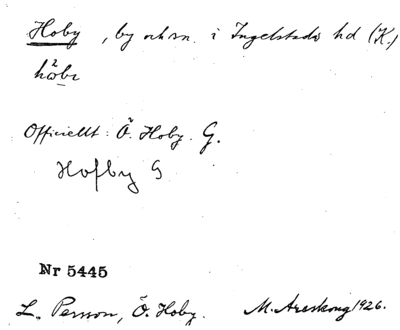 Hoby, by och sn. i Ingelstads hd (K.)
Officiellt: Ö. Hoby. G.
Hofby G
Nr 5445
L. Persson, Ö. Hoby. M. Areskoug 1926.